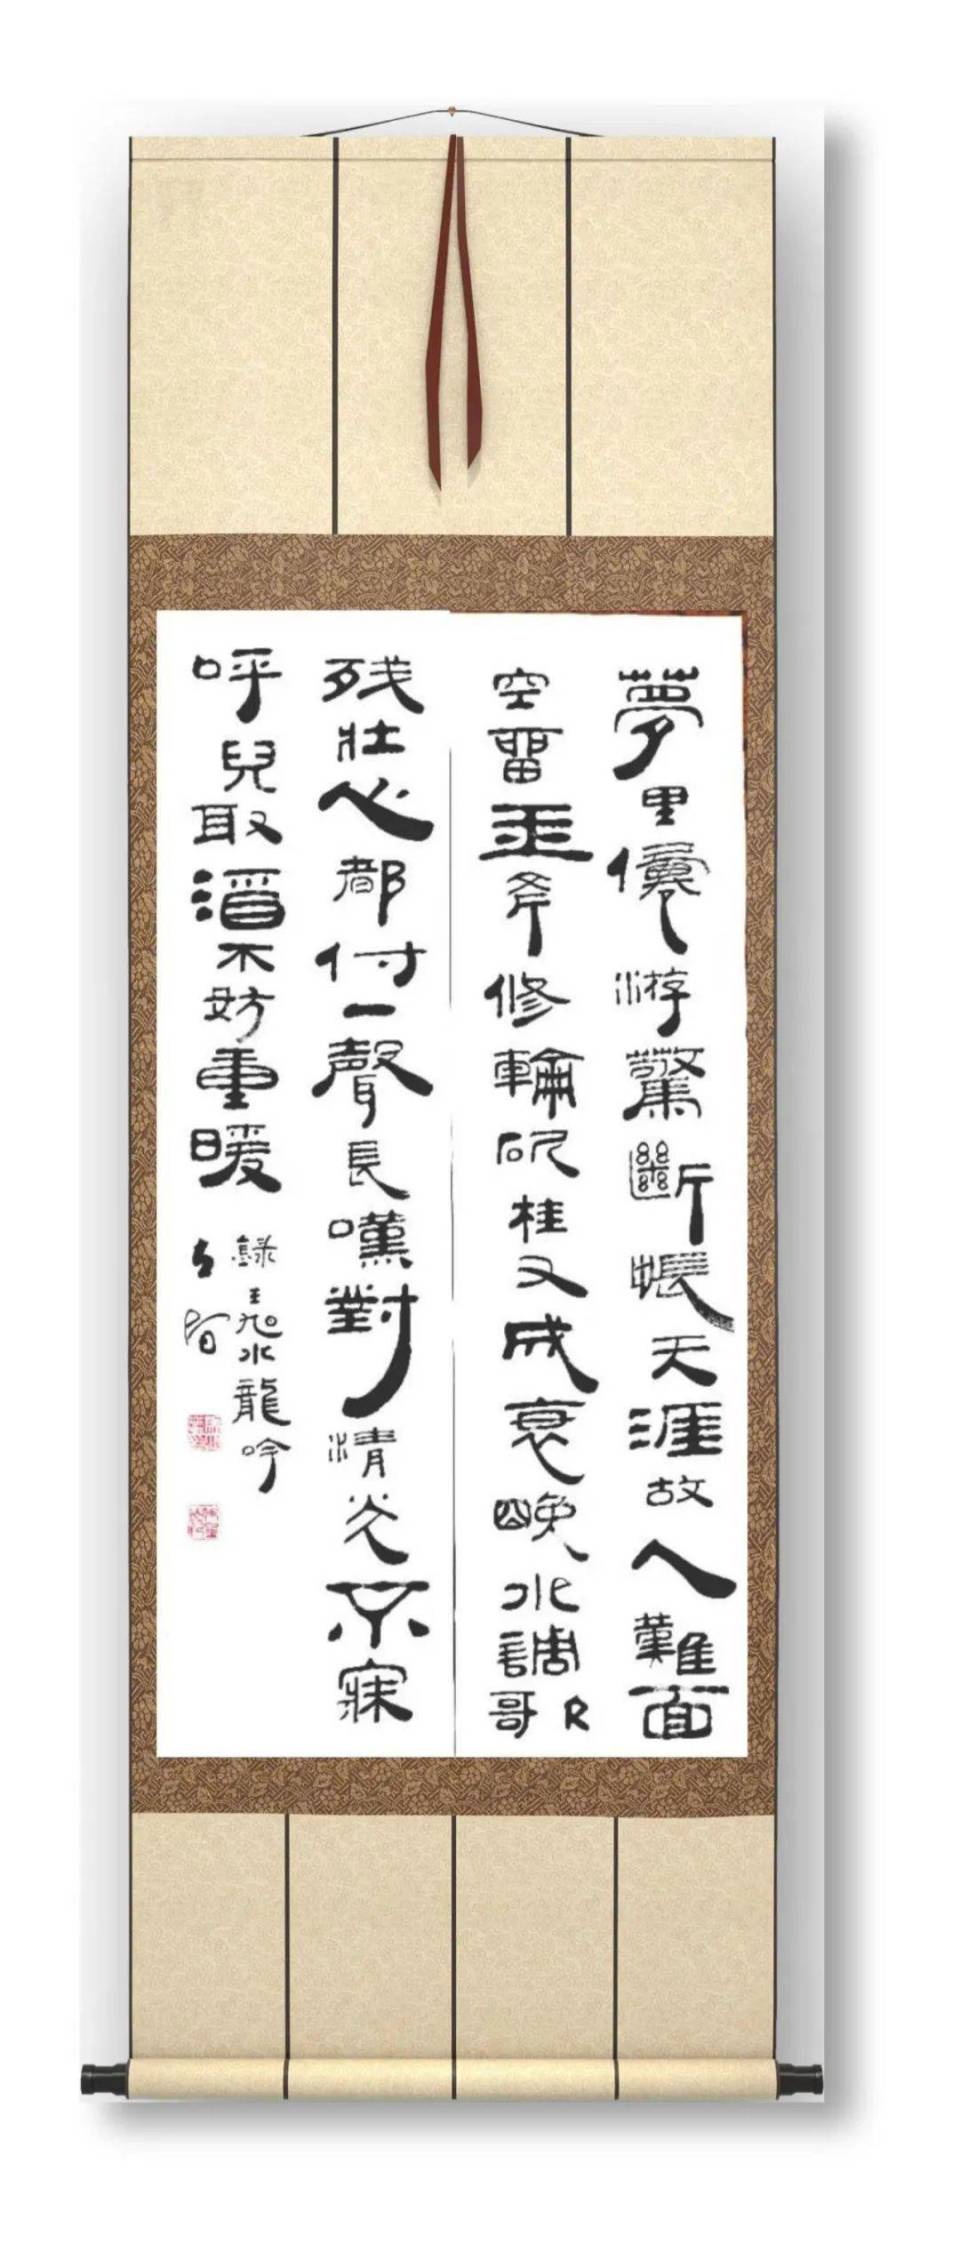 夢里僊游驚斷悵天涯故人難面
空留玉斧修輪斫桂又成衰晚水調歌
残壮心都付一聲長嘆對清光不寐
呼兒取酒不妨重暖
錄王旭水龍吟